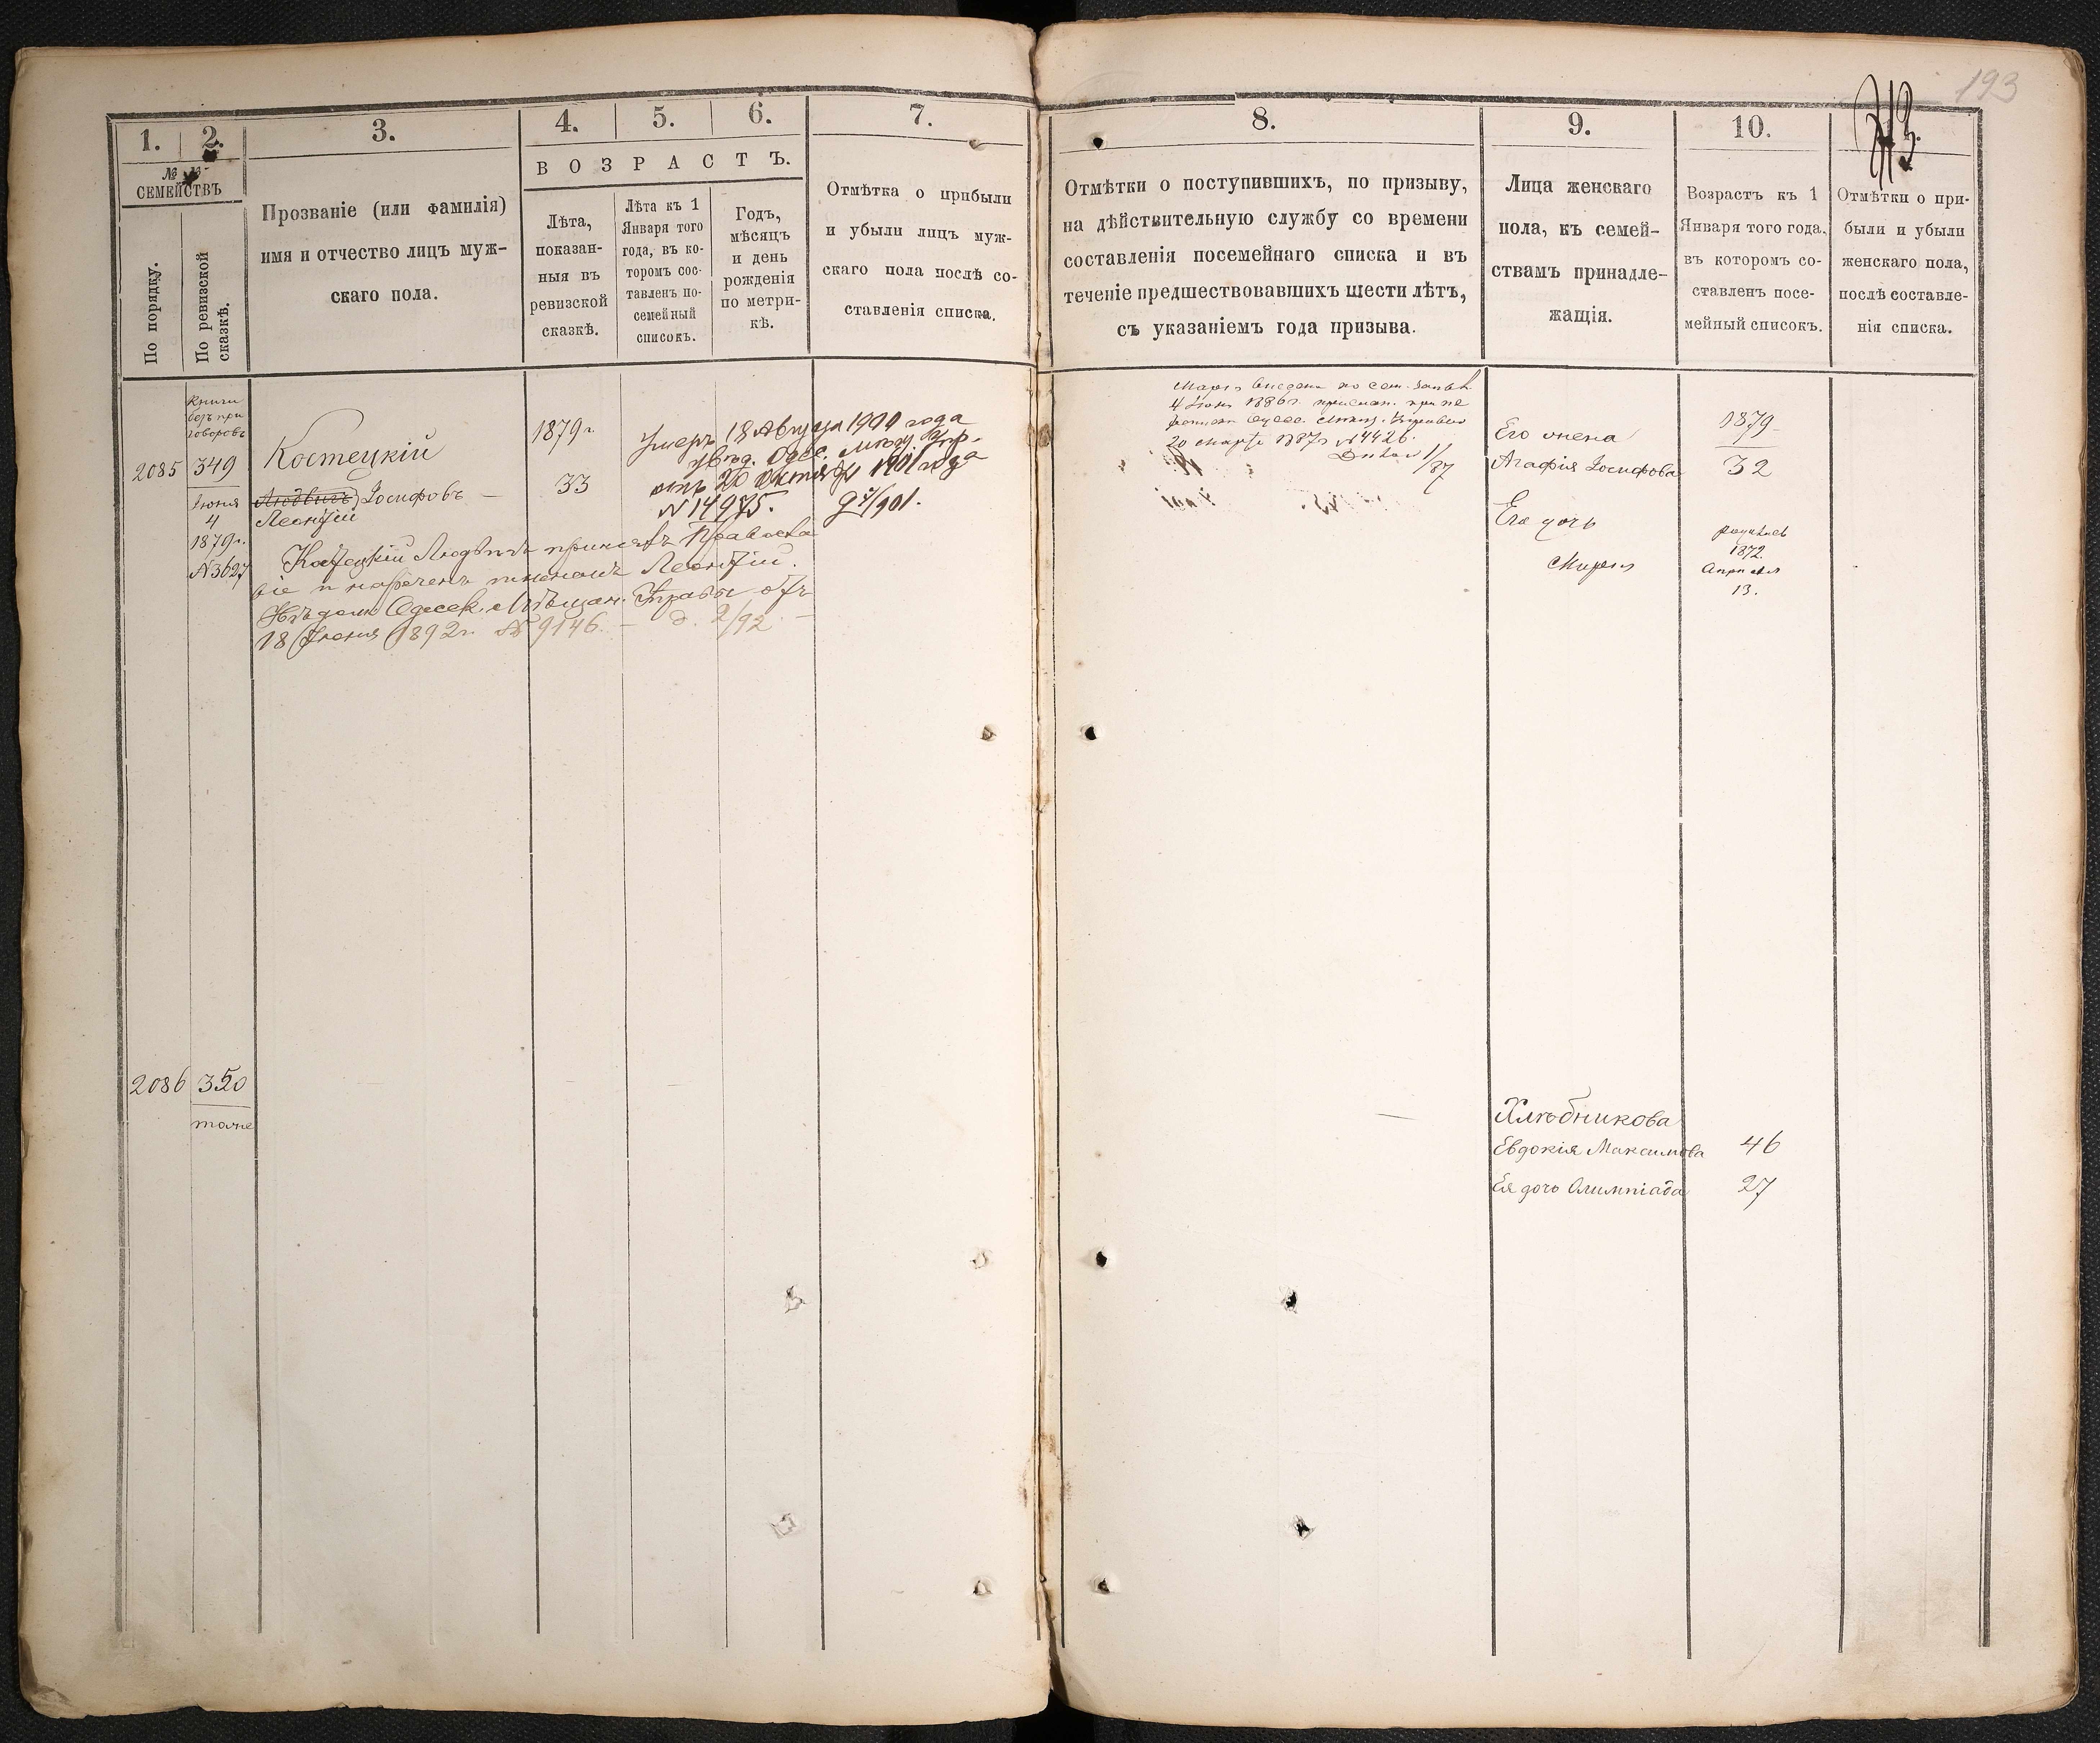 193
313.
1. 2. 3. 4. 5. 6. 7.
№ №
СЕМЕЙСТВЪ
По порядку.
По ревизской сказкѣ.
Прозваніе (или фамилія)
имя и отчество лицъ муж-
скаго пола.
ВОЗРАСТЪ.
Лѣта,
показан-
ныя въ
ревизской
сказкѣ.
Лѣта къ 1
Января того
года, въ ко-
торомъ сос-
тавленъ по-
семейный
списокъ.
Годъ,
мѣсяцъ
и день
рожденія
по метри-
кѣ.
Отмѣтка о прибыли
и убыли лицъ муж-
скаго пола послѣ со-
ставленія списка.
8. 9. 10.
Отмѣтки о поступившихъ, по призыву,
на дѣйствительную службу со времени
составленія посемейнаго списка и въ
теченіе предшествовавшихъ шести лѣтъ,
съ указаніемъ года призыва.
Лица женскаго
пола, къ семей-
ствамъ принадле-
жащія.
Возрастъ къ 1
Января того года,
въ которомъ со-
ставленъ посе-
мейный списокъ.
Отмѣтки о при-
были и убыли
женскаго пола,
послѣ составле-
нія списка.
2085
Книги
безъ при
говоровъ
349
Іюня
4
1879г.
№3627
Костецкій
Людвигъ Іосифовъ —
Леонтій
1879г
33
Умеръ 18 Августа 1900 года
увѣд. Одес. мѣщ. Упр.
отъ 20 Октября 1901 года
№ 14975.
Костецкій Людвигъ принялъ Правосла
віе и нареченъ именемъ Леонтій.
Увѣдом. Одесск. Мѣщан. Управы отъ
18 Іюня 1892г. № 9146. — д. 2/92. —
4 Іюня 1886г.
20 Марта 1887г №4426.
1/87
Его жена
Агафія Іосифова
1879
32
Его дочь
Марія
родилась
1872
Апрѣля
13.
2086
350
тоже
Хлѣбникова
Евдокія Максимова 46
Ея дочь Олимпіада 27